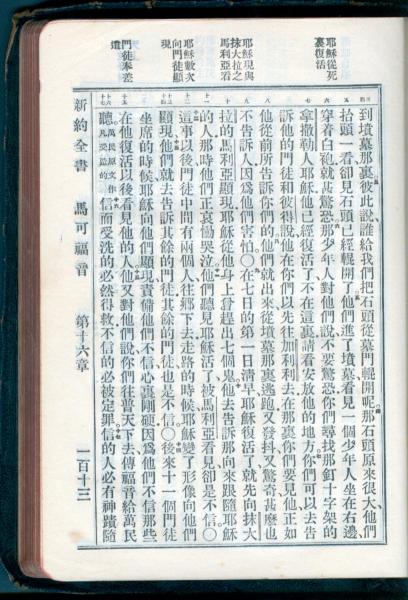 耶穌從死
裏復活
耶穌現與
抹大拉之
馬利亞看
耶穌數次
向門徒顯
現
門徒奉差
遣
到墳墓那裏彼此說誰給我們把石頭從墓門輥開呢那石頭原來很大他們
抬頭一看卻見石頭已經輥開了他們進了墳墓看見一個少年人坐在右邊
穿着白袍就甚驚恐那少年人對他們說不要驚恐你們尋找那釘十字架的
拿撒勒人耶穌他已經復活了不在這裏請看安放他的地方你們可以去告
訴他的門徒和彼得說他在你們以先往加利利去在那裏你們要見他正如
他從前所告訴你們的他們就出來從墳墓那裏逃跑又發抖又驚奇甚麼也
不告訴人因爲他們害怕〇在七日的第一日淸早耶穌復活了就先向抹大
拉的馬利亞顯現耶穌從他身上曾趕出七個鬼他去告訴那向來跟隨耶穌
的人那時他們正哀慟哭泣他們聽見耶穌活了被馬利亞看見卻是不信〇
這事以後門徒中間有兩個人往鄕下去走路的時候耶穌變了形像向他們
顯現他們就去告訴其餘的門徒其餘的門徒也是不信〇後來十一個門徒
坐席的時候耶穌向他們顯現責備他們不信心裏剛硬因爲他們不信那些
在他復活以後看見他的人他又對他們說你們往普天下去傳福音給萬民
萬民原文作
聽凡受造的
信而受洗的必然得救不信的必被定罪信的人必有神蹟隨
新約全書 馬可福音 第十六章 一百十三